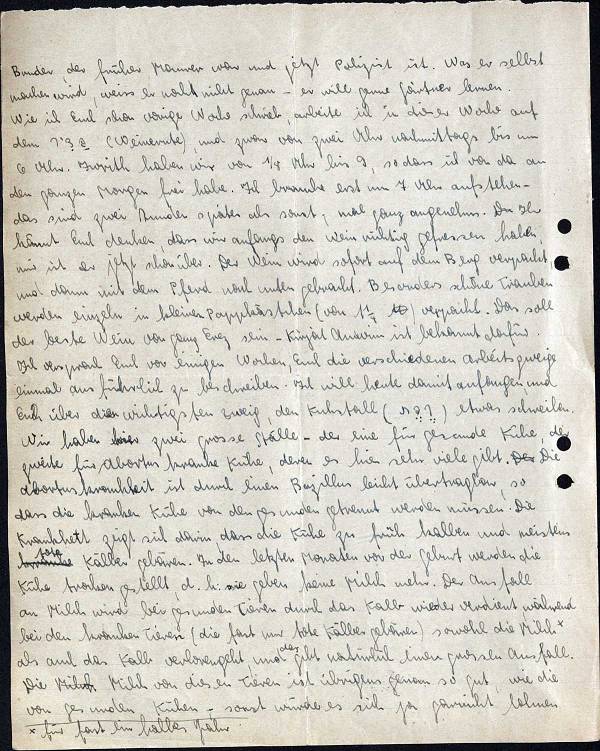 Bruder, der früher Maurer war und jetzt Polizist ist. Was er selbst
machen wird, weiss er noch nicht genau – er will gerne Gärtner lernen.
Wie ich Euch schon vorige Woche schrieb, arbeite ich in dieser Woche auf
dem (Weinernte), und zwar von zwei Uhr nachmittags bis um
6 Uhr. Iwrith haben wir von 1/2 8 Uhr bis 9, so dass ich von da an
den ganzen Morgen frei habe. Ich brauche erst um 7 Uhr aufstehen –
das sind zwei Stunden später als sonst, mal ganz angenehm. Da Ihr
könnt Euch denken, dass wir anfangs den Wein richtig gefressen haben,
mir ist er jetzt schon über. Der Wein wird sofort auf dem Berg verpackt,
und dann mit dem Pferd nach unten gebracht. Besonders schöne Trauben
werden einzeln in kleinen Pappkästchen (von ) verpackt. Das soll
der beste Wein von ganz Erez sein – Kirjat Anavim ist bekannt dafür.
Ich versprach Euch vor einigen Wochen, Euch die verschiedenen Arbeitszweige
einmal ausführlich zu beschreiben. Ich will heute damit anfangen und
Euch über den wichtigsten Zweig, den Kuhstall (רפת) etwas schreiben.
Wir haben hier zwei grosse Ställe – der eine für gesunde Kühe, der
zweite für abortuskranke Kühe, derer es hier sehr viele gibt. Der Die
Abortuskrankheit ist durch einen Bazillus leicht übertragbar, so
dass die kranken Kühe von den gesunden getrennt werden müssen. Die
Krankheit zeigt sich darin dass die Kühe zu früh kalben und meistens
kranke tote Kälber gebären. In den letzten Monaten vor der Geburt werden die
Kühe trocken gestellt, d. h. sie geben keine Milch mehr. Der Ausfall
an Milch wird bei gesunden Tieren durch das Kalb wieder verdient während
bei den kranken Tieren (die fast nur tote Kälber gebären) sowohl die Milch*
als auch das Kalb verlorengeht, und das gibt natürlich einen grossen Ausfall.
Die Milch Milch von diesen Tieren ist übrigens genau so gut, wie die
von gesunden Kühen – sonst würde es sich ja garnicht lohnen
* für fast ein halbes Jahr.